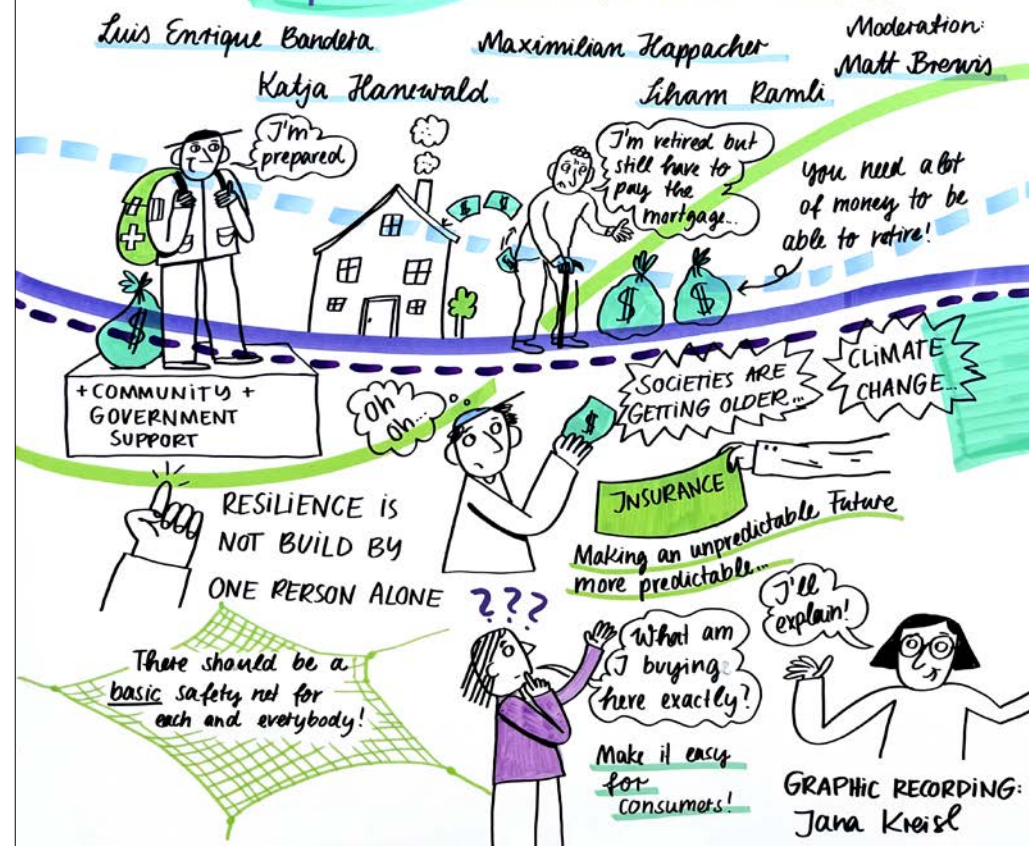 Luis Enrique Bandera
Maximilian Happacher
Moderation:
Matt Brewis
Katja Hanewald
Siham Ramli
I'm
prepared
$
$
I'm retired but
still have to
pay the
mortgage...
you need a lot
of money to be
able to retire!
$
$
$
+ COMMUNITY +
GOVERNMENT
SUPPORT
oh
oh...
$
SOCIETIES ARE
GETTING OLDER...
CLIMATE
CHANGE...
INSURANCE
Making an unpredictable Future
more predictable...
RESILIENCE IS
NOT BUILD BY
ONE PERSON ALONE
There should be a
basic safety net for
each and everybody!
???
What am
I buying
here exactly?
I'll
explain!
Make it easy
for
consumers!
GRAPHIC RECORDING:
Jana Kreisl